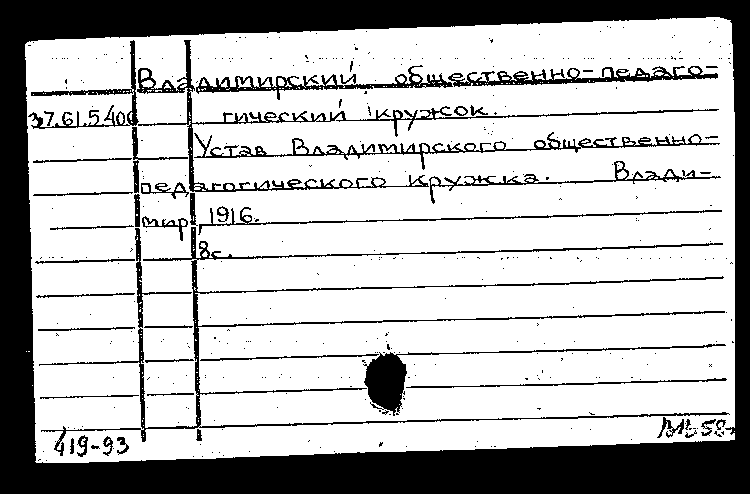 Владимирский общественно-педаго-
37.61.5400 гический кружок.
Устав Владимирского общественно-
педагогического кружка. Влади-
мир, 1916.
8с.
419-93